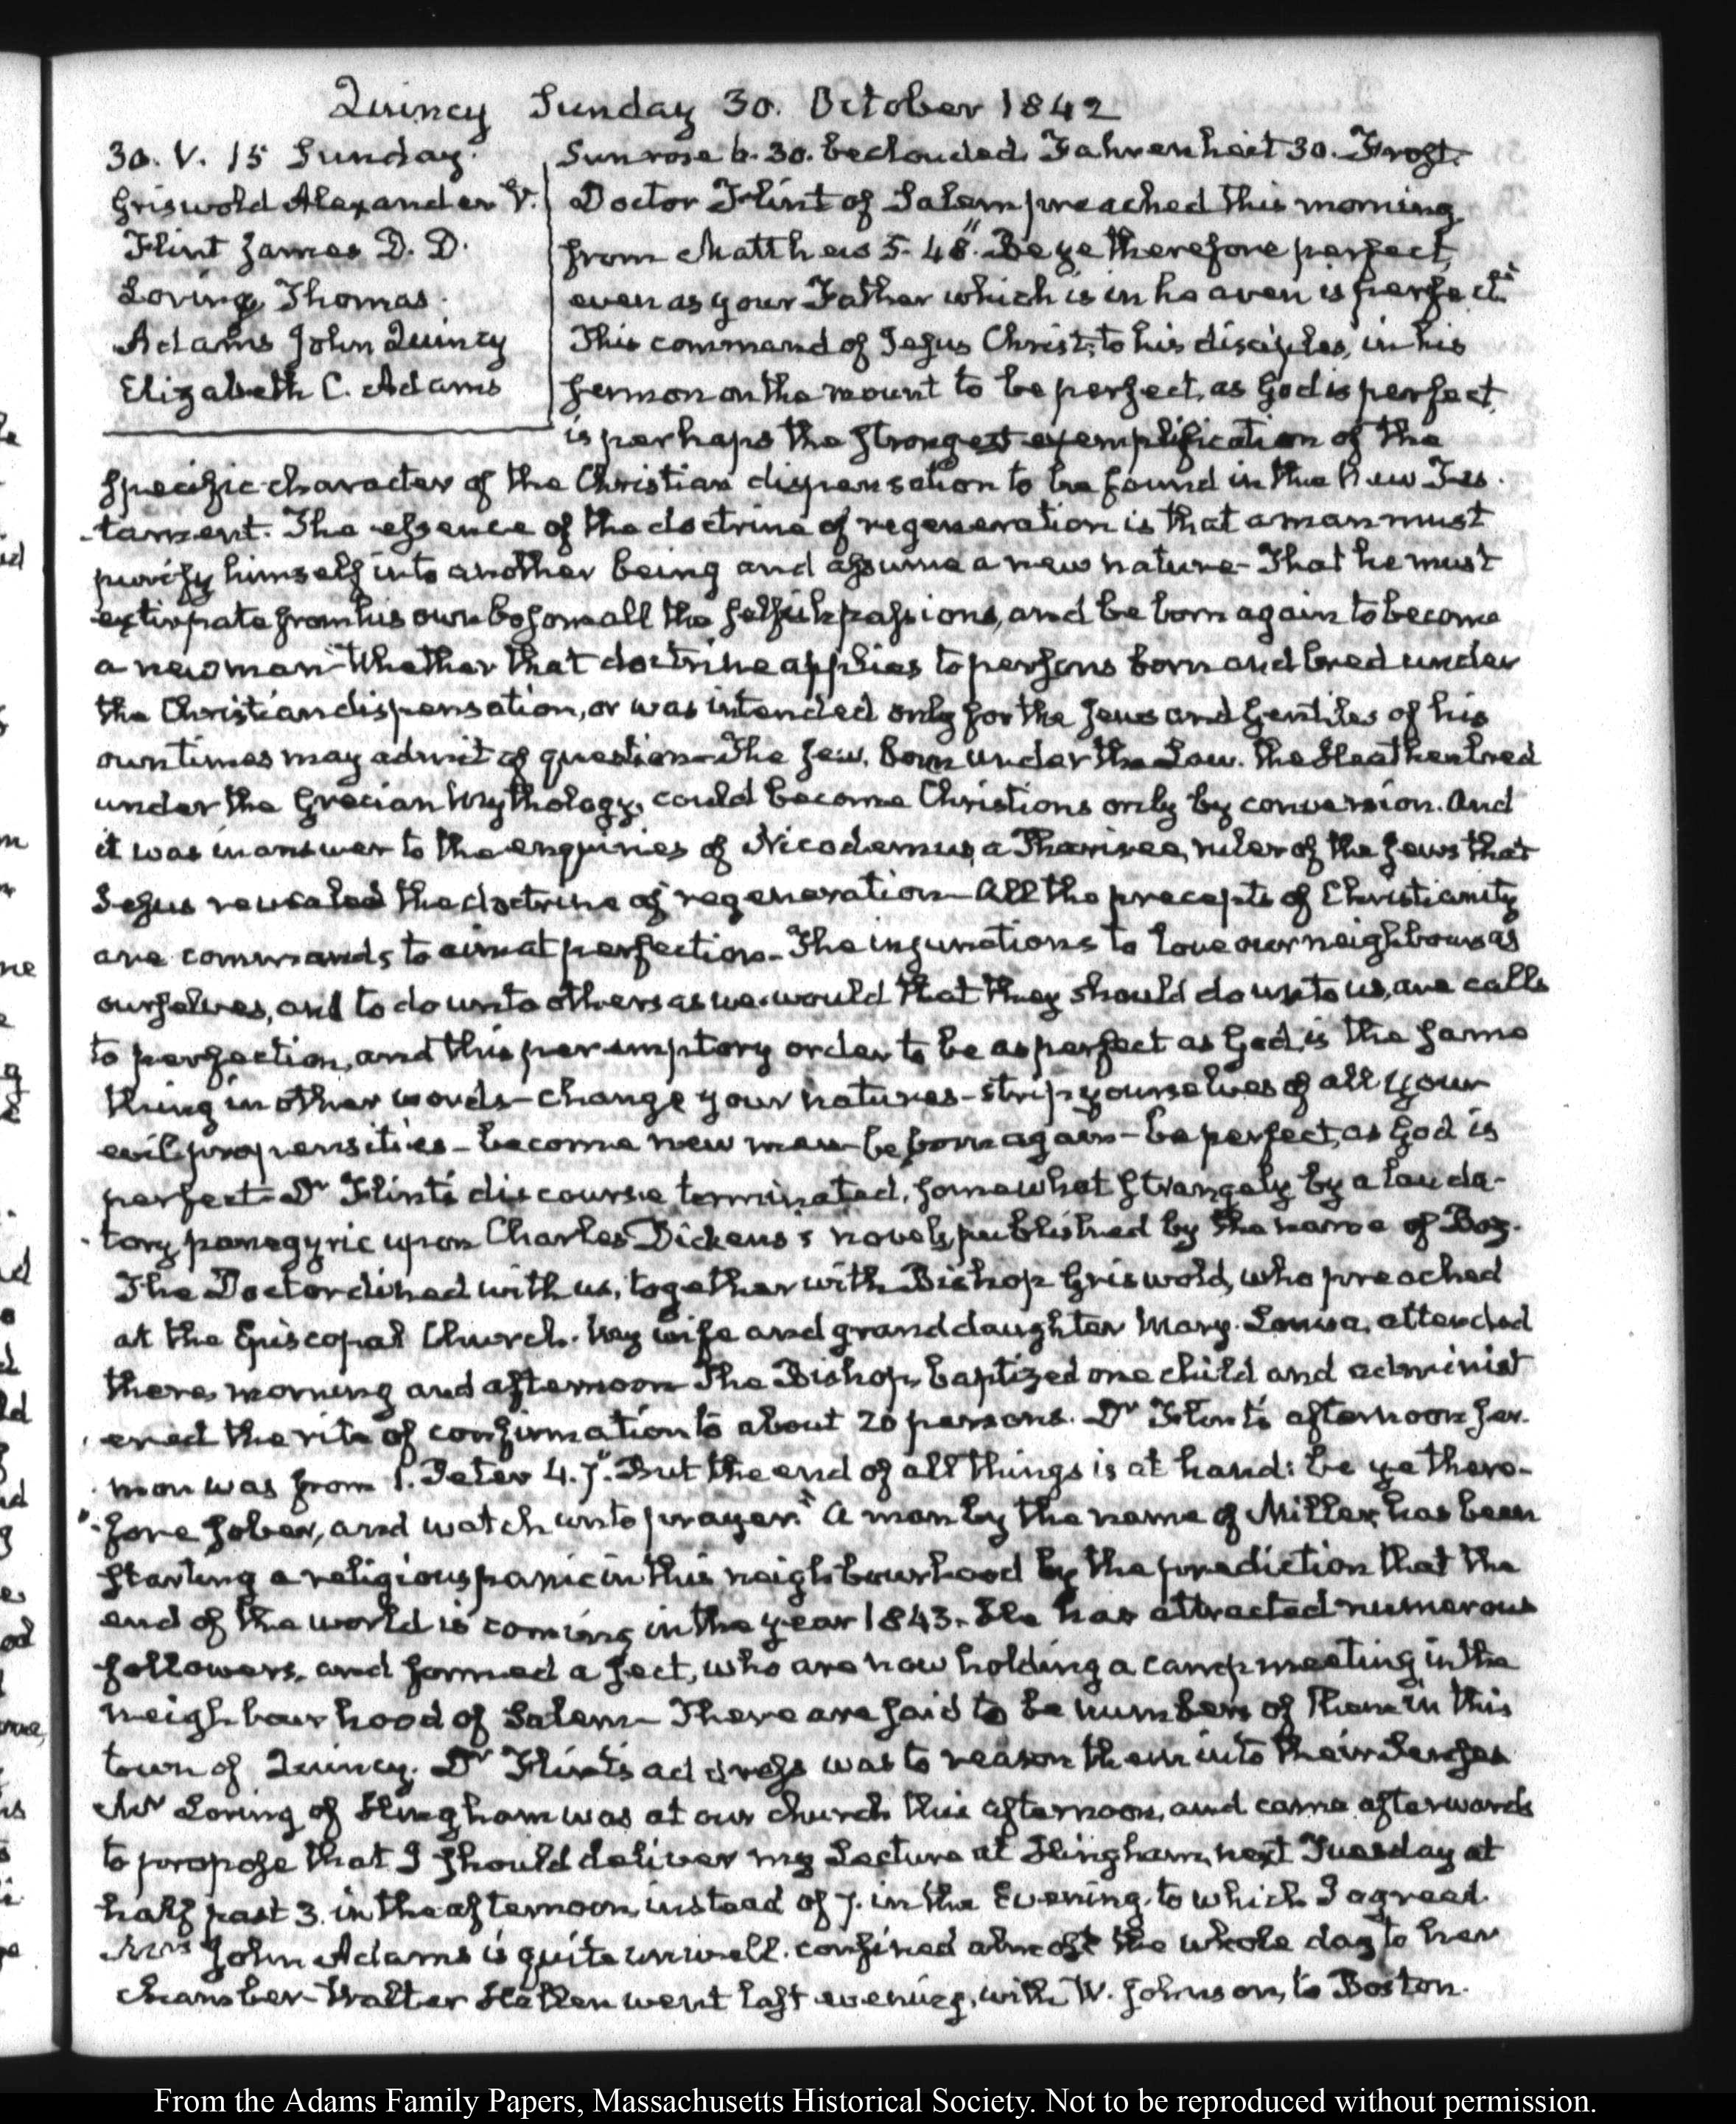 Quincy Sunday 30. October 1842
30. V. 15 Sunday.
Griswold Alexander V.
Flint James D. D.
Loring Thomas.
Adams John Quincy
Elizabeth C. Adams
Sun rose 6.30. beclouded. Fahrenheit 30. Frost.
Doctor Flint of Salem preached this morning
from Matthew 5. 48. "Be ye therefore perfect,
even as your Father which is in heaven is perfect"
This command of Jesus Christ, to his disciples, in his
sermon on the mount to be perfect, as God is perfect,
is perhaps the strongest exemplification of the
specific character of the Christian dispensation to be found in the New Tes-
-tament. The essence of the doctrine of regeneration is that a man must
purify himself into another being and assume a new nature - That he must
extirpate from his own bosom all the selfish passions, and be born again to become
a new man - Whether that doctrine applies to persons born and bred under
the Christian dispensation, or was intended only for the Jews and Gentiles of his
own times may admit of question - The Jew, born under the Law. the Heathen bred
under the Grecian Mythology, could become Christians only by conversion. And
it was in answer to the enquiries of Nicodemus, a Pharisee, ruler of the Jews that
Jesus revealed the doctrine of regeneration - All the precepts of Christianity
are commands to aim at perfection - The injunctions to love our neighbours as
ourselves, and to do unto others as we would that they should do unto us, are calls
to perfection, and this peremptory order to be as perfect as God, is the same
thing in other words - change your natures - strip yourselves of all your
evil propensities - become new men - be born again - be perfect, as God is
perfect - Dr Flint's discourse terminated, somewhat strangely by a lauda-
-tory panegyric upon Charles Dickens's novels, published by the name of Boz.
The Doctor dined with us, together with Bishop Griswold, who preached
at the Episcopal Church. My wife and granddaughter Mary-Louisa, attended
there morning and afternoon - The Bishop, baptized one child and administ
ered the rite of confirmation to about 20 persons. Dr Flint's afternoon ser-
mon was from 1. Peter 4. 7. "But the end of all things is at hand: be ye there-
"fore sober, and watch unto prayer." A man by the name of Miller, has been
starting a religious panic in this neighbourhood by the prediction that the
end of the world is coming in the year 1843 - He has attracted numerous
followers, and formed a sect, who are now holding a camp meeting in the
neighbourhood of Salem - There are said to be numbers of them in this
town of Quincy. Dr Flint's address was to reason them into their senses
Mr Loring of Hingham was at our church this afternoon, and came afterwards
to propose that I should deliver my Lecture at Hingham, next Tuesday at
half past 3. in the afternoon, instead of 7. in the Evening. to which I agreed.
Mrs John Adams is quite unwell. confined almost the whole day to her
chamber - Walter Hellen went last evening, with W. Johnson, to Boston.
From the Adams Family Papers, Massachusetts Historical Society. Not to be reproduced without permission.